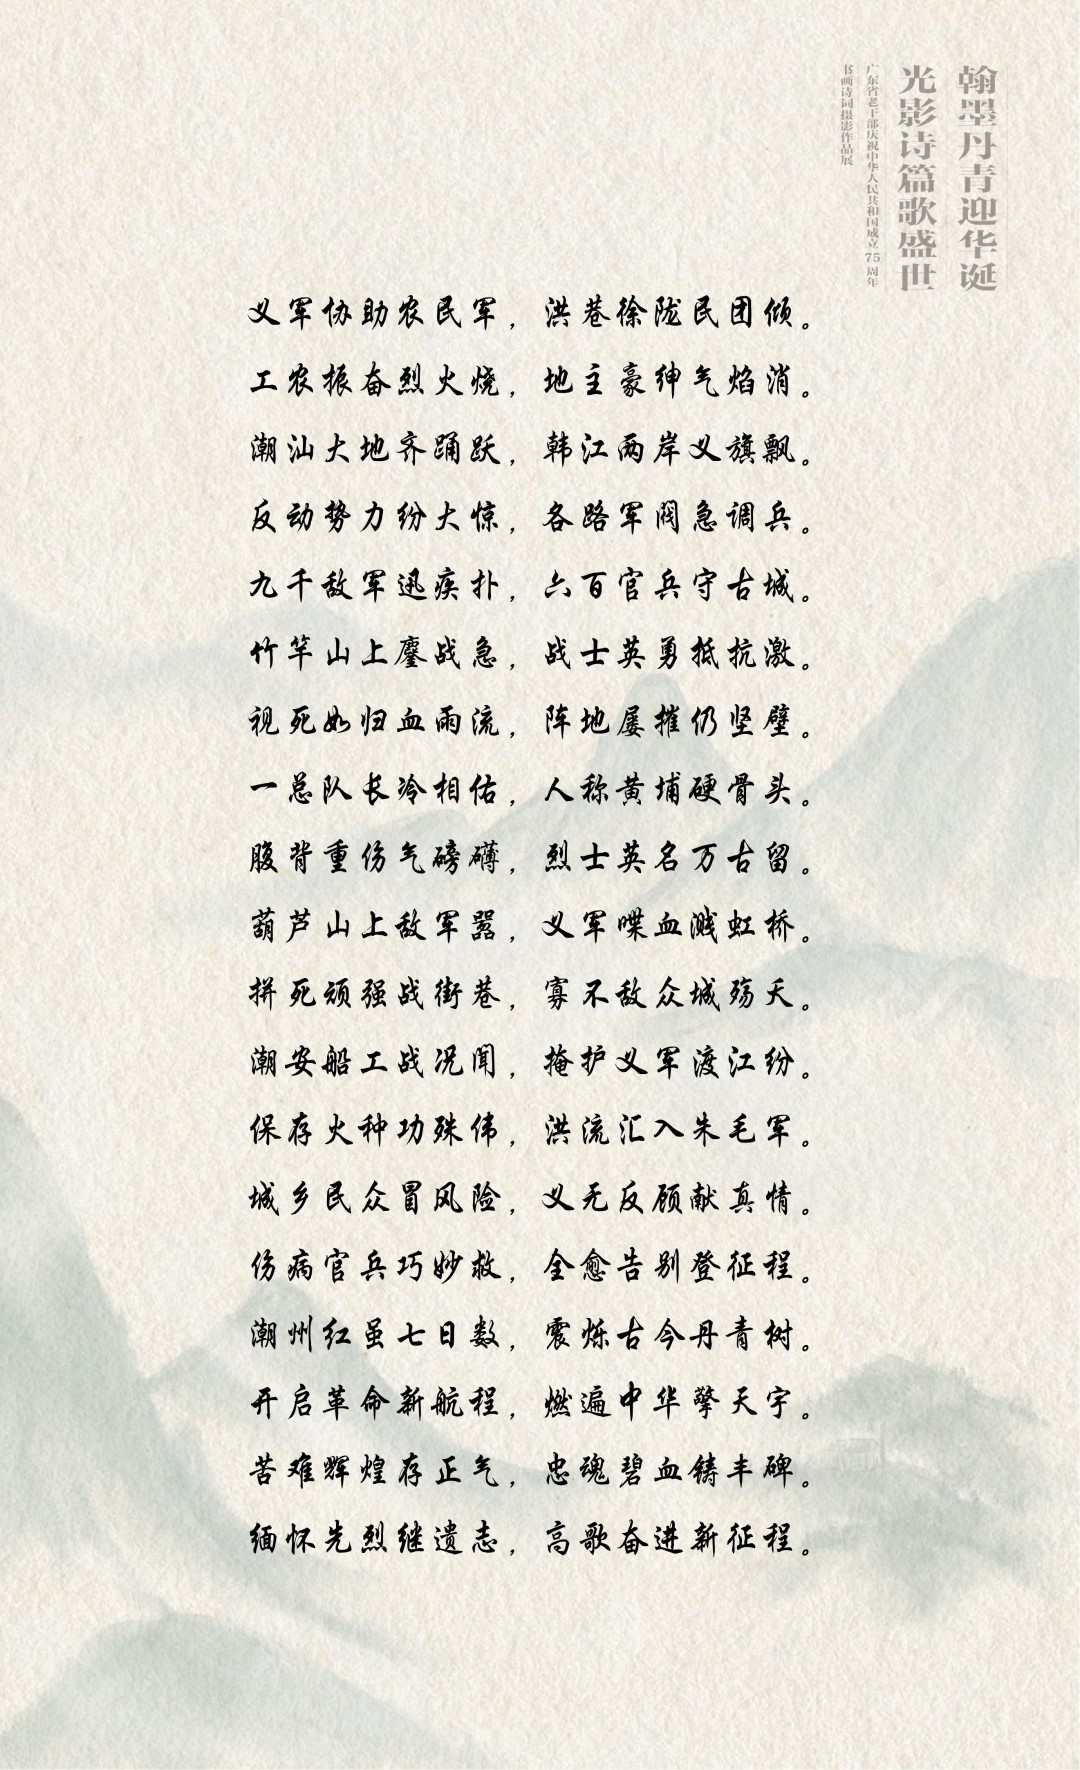 翰墨丹青迎华诞
光影诗篇歌盛世
广东省老干部庆祝中华人民共和国成立75周年
书画诗词摄影作品展
义军协助农民军，洪巷徐陇民团倾。
工农振奋烈火烧，地主豪绅气焰消。
潮汕大地齐踊跃，韩江两岸义旗飘。
反动势力纷大惊，各路军阀急调兵。
九千敌军迅疾扑，六百官兵守古城。
竹竿山上鏖战急，战士英勇抵抗激。
视死如归血雨流，阵地屡摧仍坚壁。
一总队长冷相佑，人称黄埔硬骨头。
腹背重伤气磅礴，烈士英名万古留。
葫芦山上敌军嚣，义军喋血溅虹桥。
拼死顽强战街巷，寡不敌众城殇夭。
潮安船工战况闻，掩护义军渡江纷。
保存火种功殊伟，洪流汇入朱毛军。
城乡民众冒风险，义无反顾献真情。
伤病官兵巧妙救，全愈告别登征程。
潮州红虽七日数，震烁古今丹青树。
开启革命新航程，燃遍中华擎天宇。
苦难辉煌存正气，忠魂碧血铸丰碑。
缅怀先烈继遗志，高歌奋进新征程。